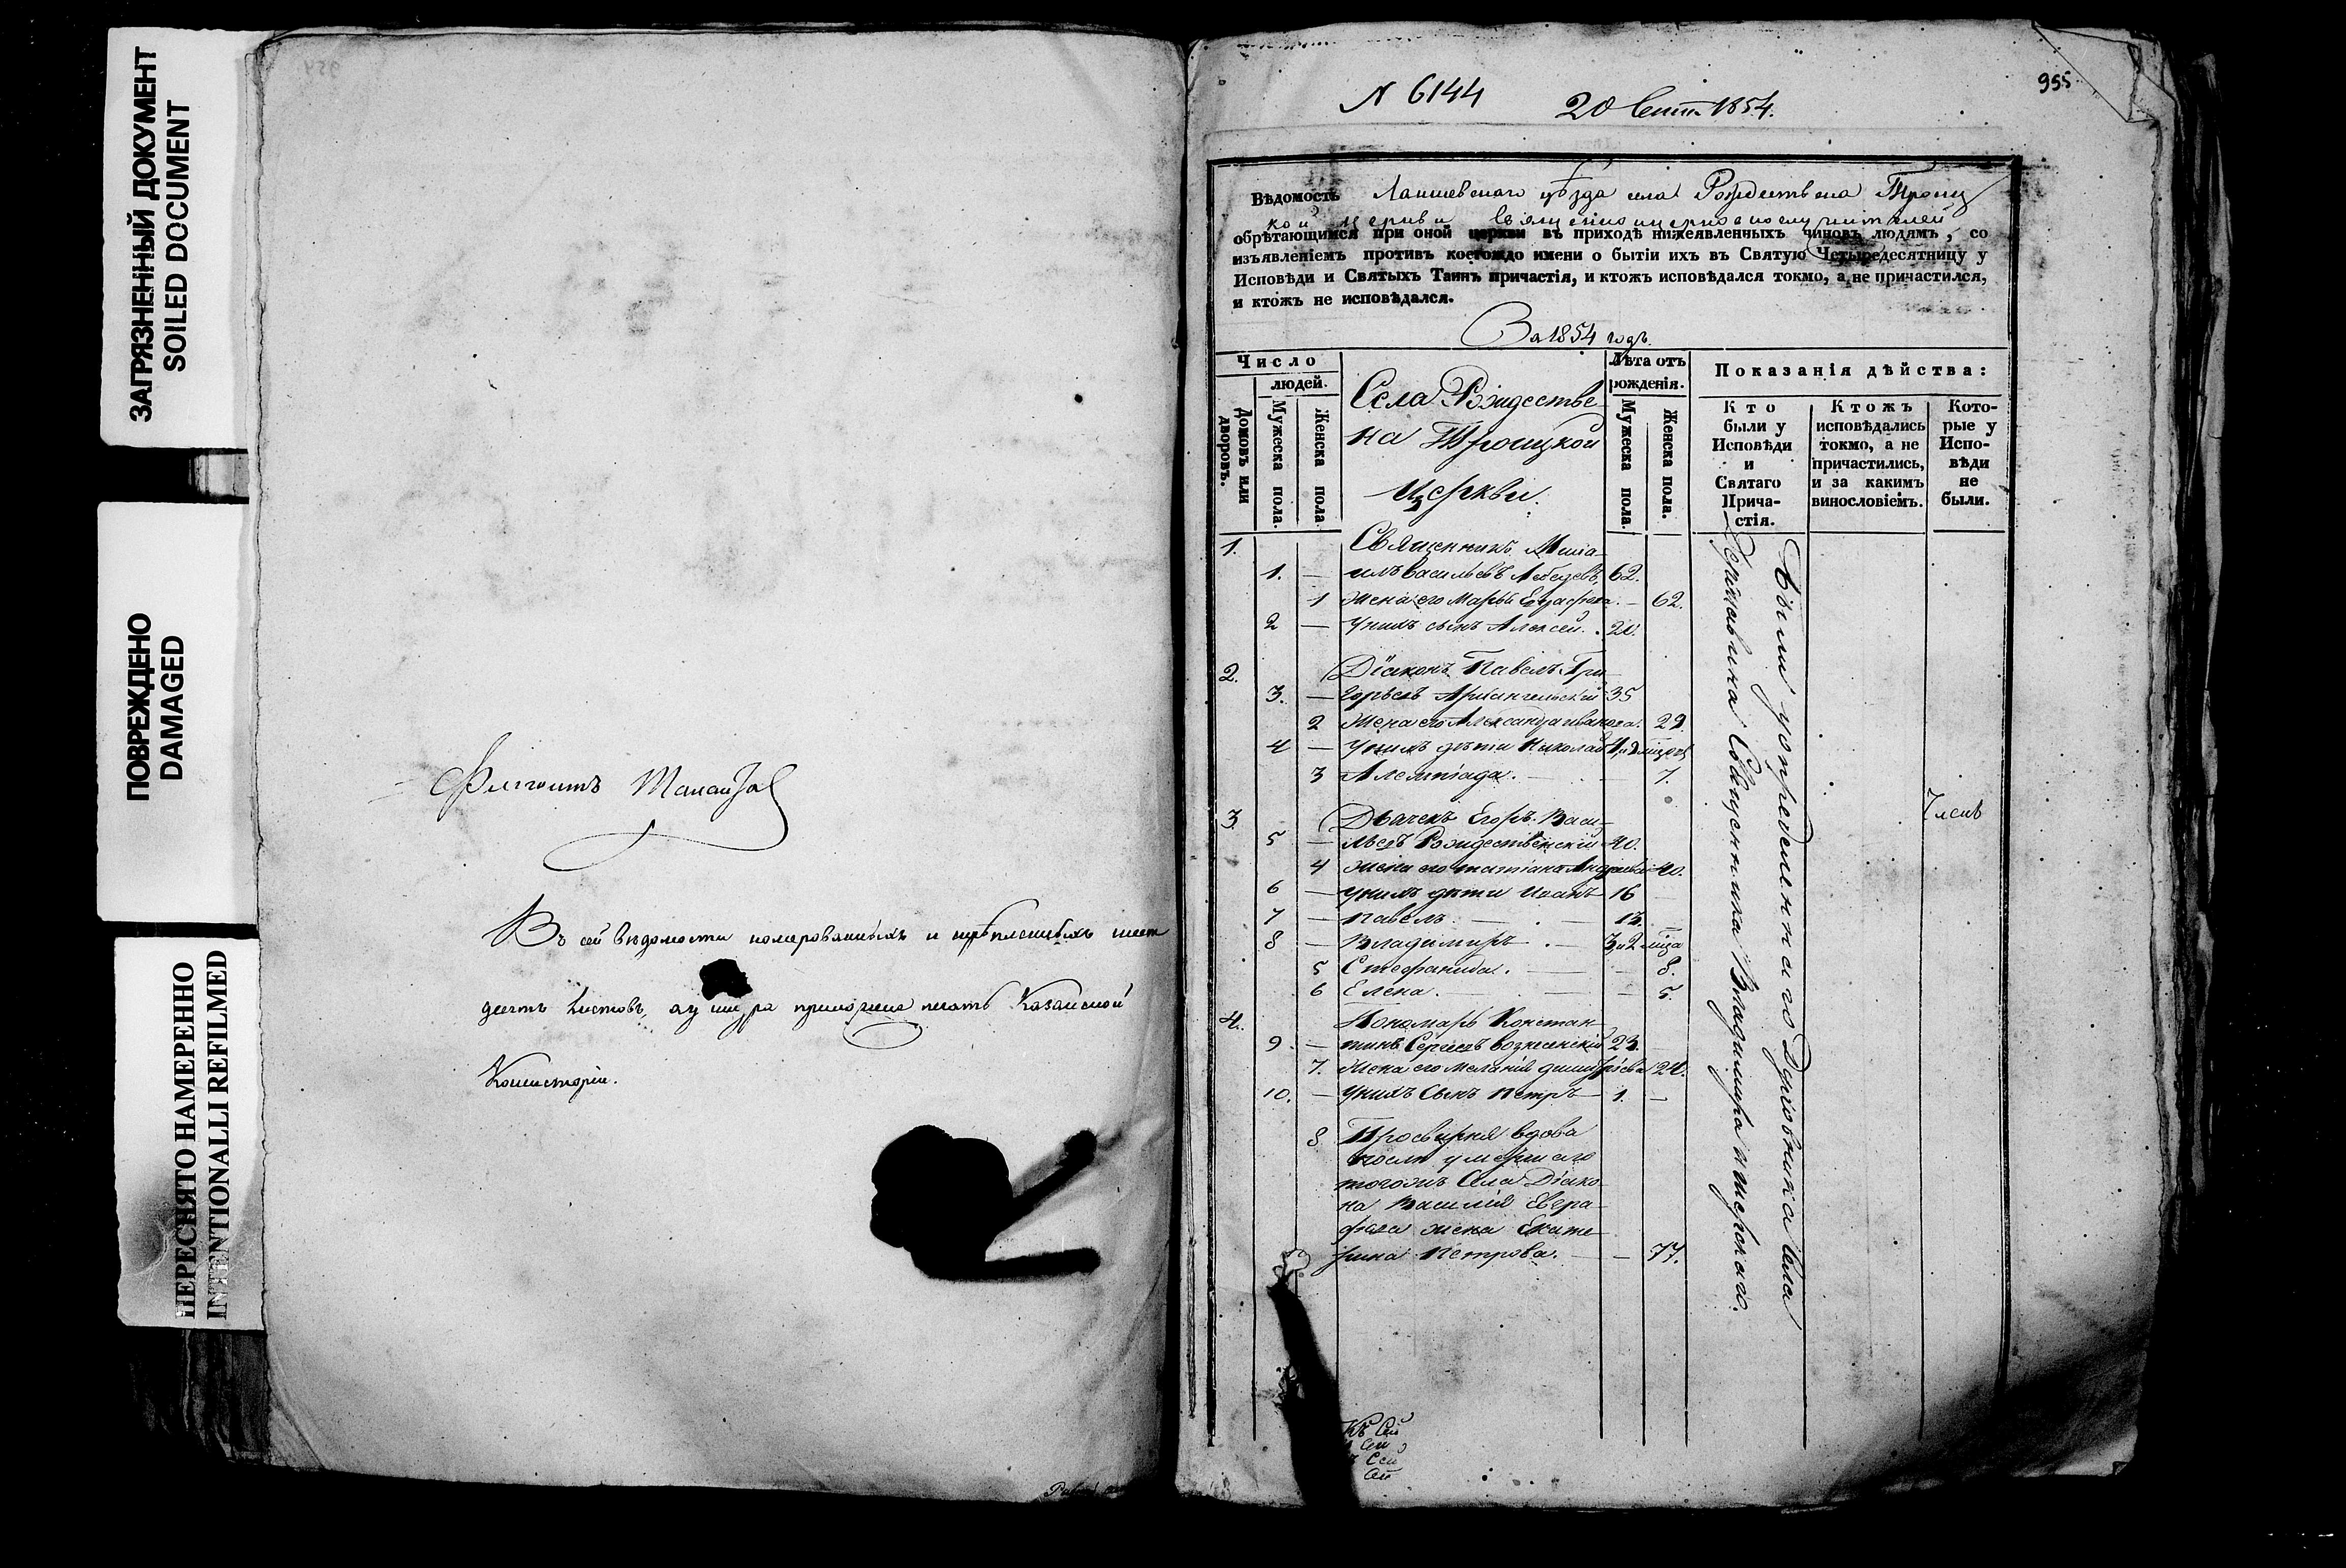 ЗАГРЯЗНЕННЫЙ ДОКУМЕНТ
SOILED DOCUMENT
ПОВРЕЖДЕНО
DAMAGED
ПЕРЕСНЯТО НАМЕРЕННО
INTENTIONALLI REFILMED
Въ сей вѣдомости номерованныхъ и скрѣпленныхъ шесть
десятъ листовъ, а у шнура приложена печать Казанской
Консисторіи.
N 6144
20 Сент. 1854.
955
Вѣдомость Лаишевскаго уѣзда села Рождествена Троиц
кой церкви
обрѣтающимся при оной церкви въ приходѣ нижеявленныхъ чиновъ людямъ, со
изъявленіемъ противъ коегождо имени о бытіи ихъ въ Святую Четыредесятницу у
Исповѣди и Святыхъ Таинъ причастія, и ктожъ исповѣдался токмо, а не причастился,
и ктожъ не исповѣдался.
За 1854 годъ.
Число
людей.
Домовъ или дворовъ.
Мужеска пола.
Женска пола
Села Рождестве
на Троицкой
церкви.
Лѣта отъ
рожденія.
Мужеска пола.
Женска пола.
Показанія дѣйства:
Кто
были у
Исповѣди
и
Святаго
Прича-
стія.
Ктожъ
исповѣдались
токмо, а не
причастились,
и за какимъ
винословіемъ.
Кото-
рые у
Испо-
вѣди
не
были.
1. Священникъ Миха
1. — илъ Васильевъ Лебедевъ. 62.
1 Жена его Марья Евграфова. — 62.
2 — У нихъ сынъ Алексей. 20.
2. Діаконъ Павелъ Гри
3. — горьевъ Архангельскій 35
2 Жена его Александра Иванова. 29.
4 — У нихъ дѣти Николай
3 Алемпіада. — 7.
3. Дьячекъ Егоръ Васи
5 — льевъ Рождественскій 40.
4 Жена его Татіана Андреева 40.
6 — У нихъ дѣти Иоанъ 16
7 — Павелъ. — 13.
8 — Владимиръ. — 3 и 2 мѣца
5 Стефанида. — 8.
6 Елена. — 5.
4. Пономарь Констан
9. — тинъ Сергеевъ Вознесенскій 23.
7. Жена его Меланія Димитріева 24.
10. — У нихъ сынъ Петръ 1. —
8 Просвирня вдова
после умершаго
тогожъ Села Діако
на Василія Евгра
фова жена Екате
рина Петрова. — 77.
Были у опредѣленнаго Духовника Села
Священника Владимира